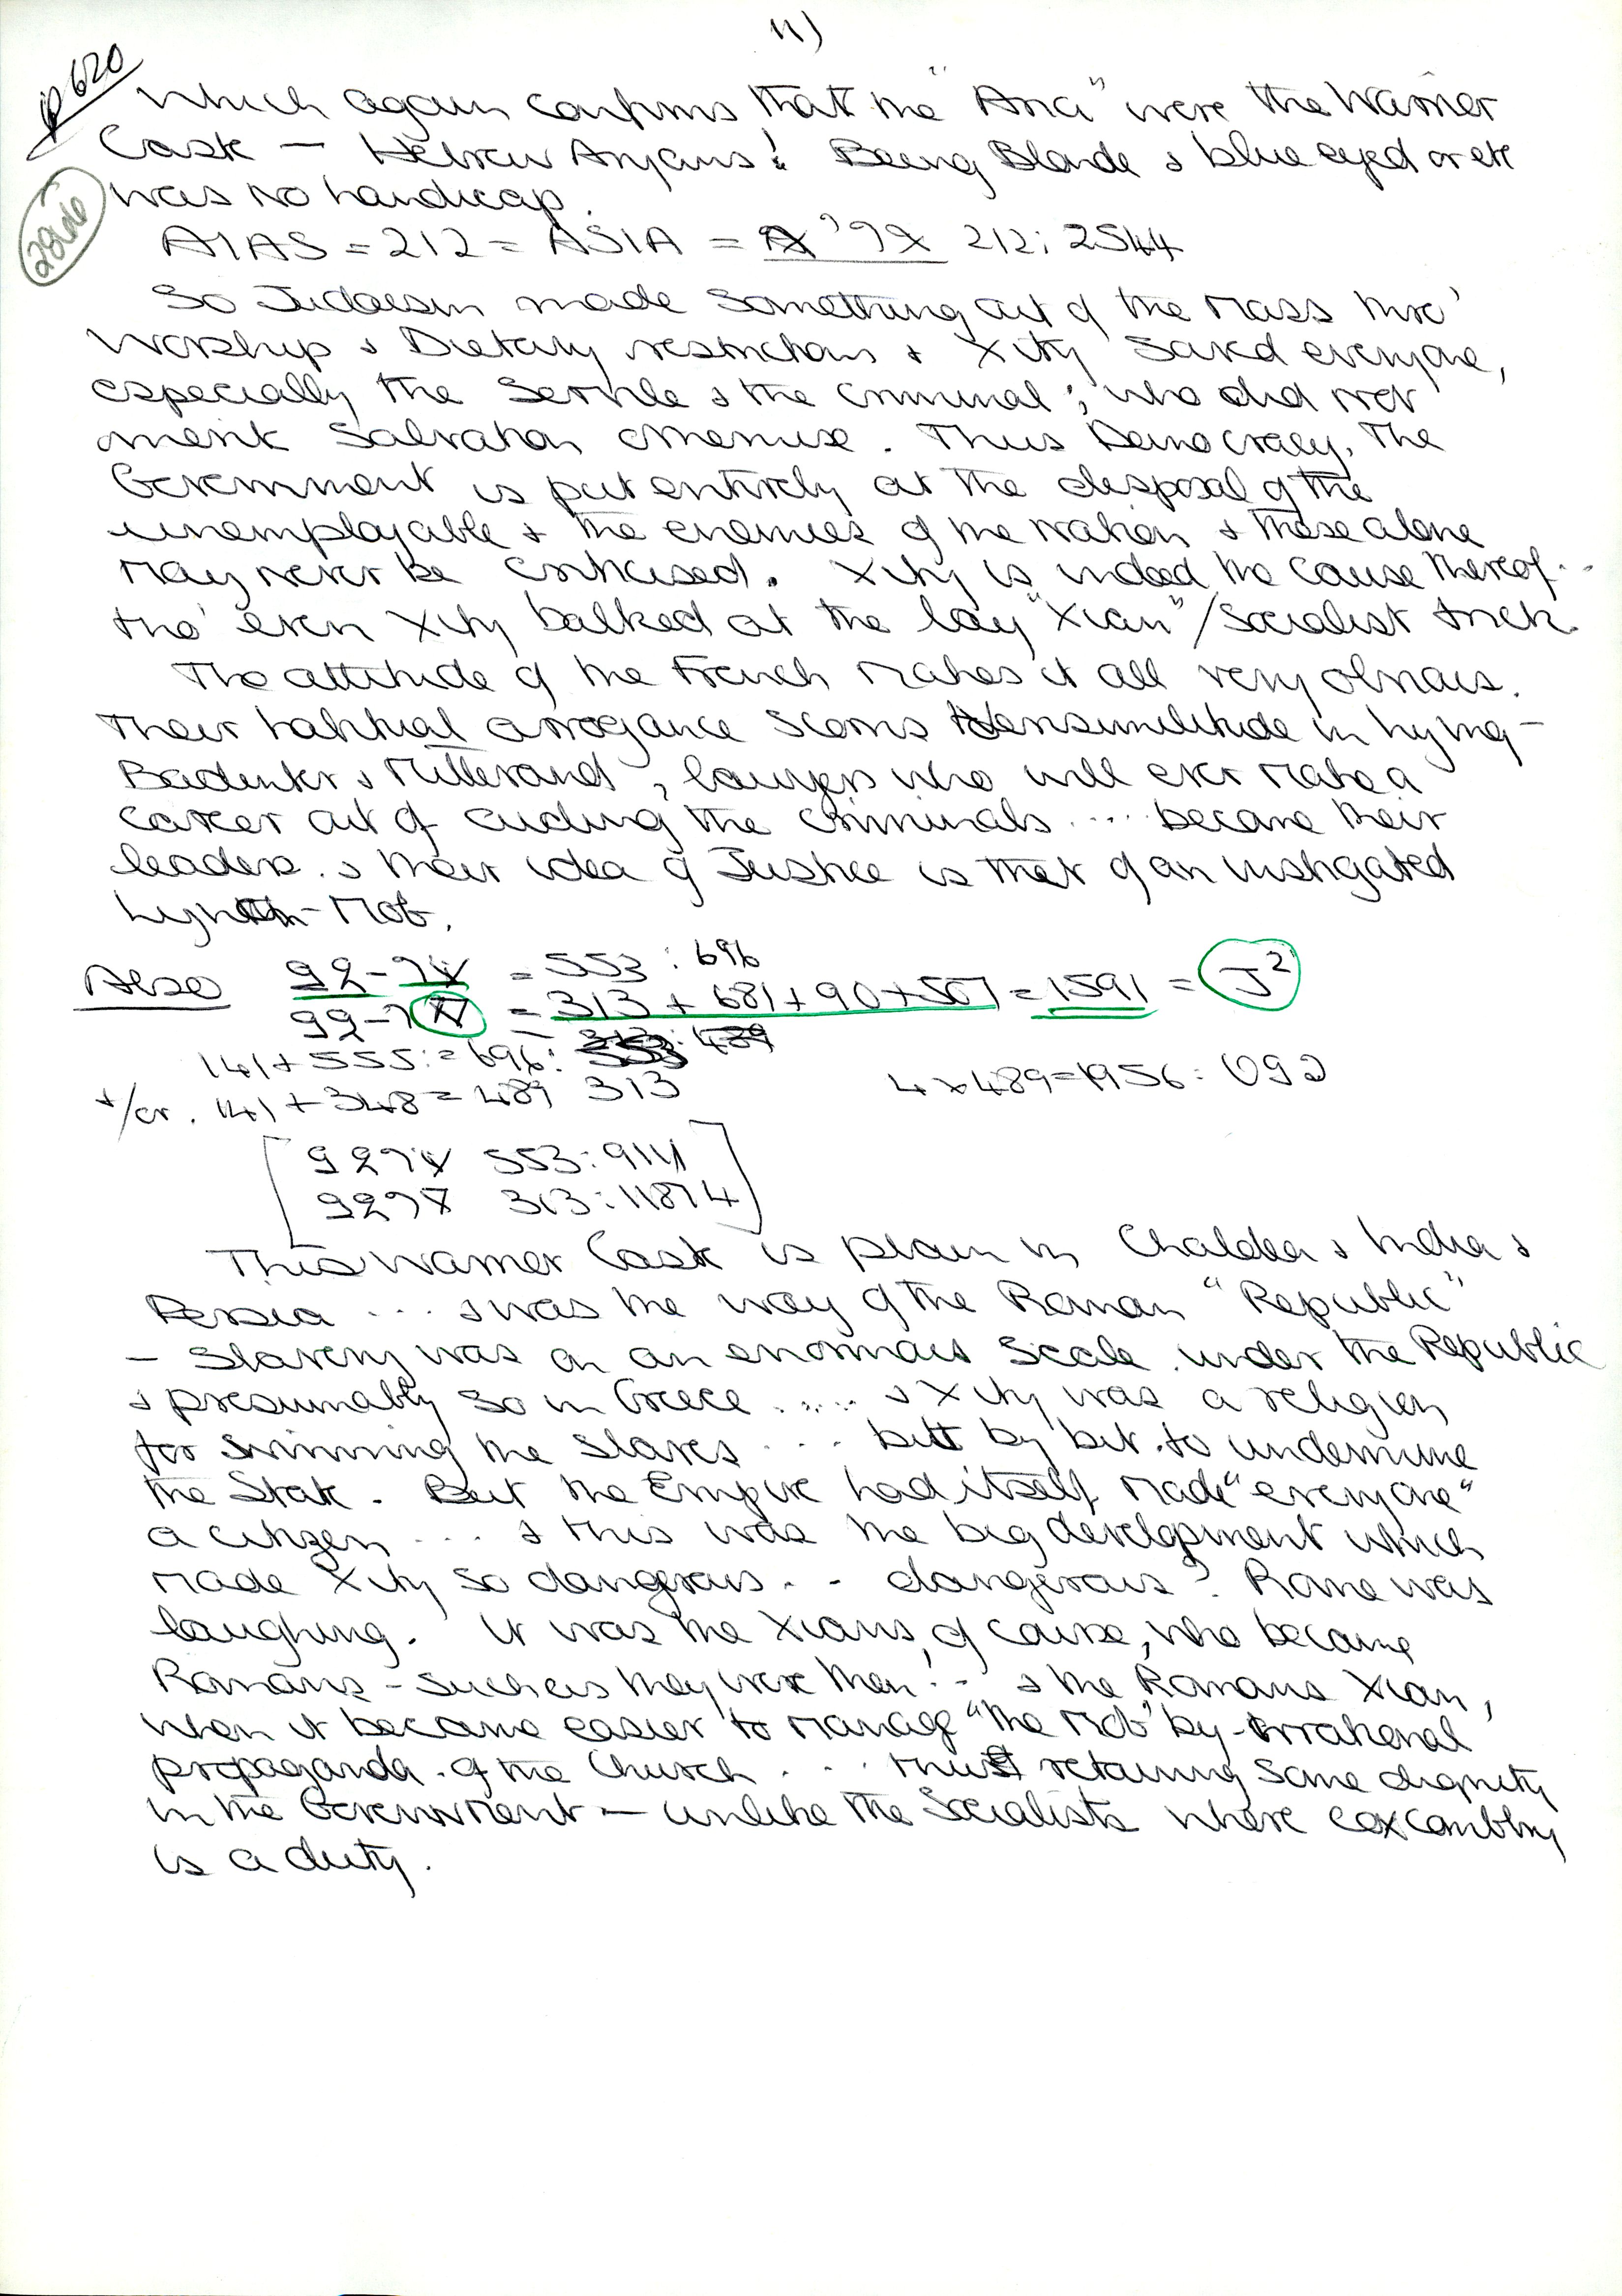 11)
p620
28/6
Which again confirms that the "Aria" were the Warrior
Caste – Hebrew Aryans! Being Blonde & blue eyed or etc
was no handicap.
AIAS = 212 = ASIA = 212: 2544
So Judaesm made something out of the Mass thro'
Worship & Dietary restrictions & Xity saved everyone,
especially the Servile & the Criminal; who did not
merit Salvation otherwise. Thus Democracy, The
Government is put entirely at the disposal of the
unemployable & the enemies of the Nation & these alone
May never be criticised. Xity is indeed the cause thereof...
tho' even Xity balked at the lay "Xian"/Socialist trick.
The attitude of the French makes it all very obvious.
Their habitual arrogance scorns verisimilitude in lying –
& Mitterand, lawyers who will ever make a
career out of aiding the criminals .... became their
leaders. & their idea of Justice is that of an instigated
Lynch-Mob.
Also = 553 : 696
= 313 + 681 + 90 + 507 = 1591 = J²
141 + 555 := 696:
4 x 489 = 1956:
+/or. 141 + 348 = 489 313
553: 9141
313: 11874
This Warrior Caste is plain in Chaldea & India &
Persia ... & was the way of the Roman "Republic"
– Slavery was on an enormous scale under the Republic
& presumably so in Greece ..... & Xity was a religion
for the slaves ... bit by bit to undermine
the State. But the Empire had itself made "everyone"
a citizen ... & this was the big development which
made Xity so dangerous... dangerous? Rome was
laughing. It was the Xians, of course, who became
Romans – such as they were then!.. & the Romans Xian,
when it became easier to manage "the Mob" by irrational
propaganda of the Church .... thus retaining some dignity
in the Government – unlike the Socialists where coxcombry
is a duty.